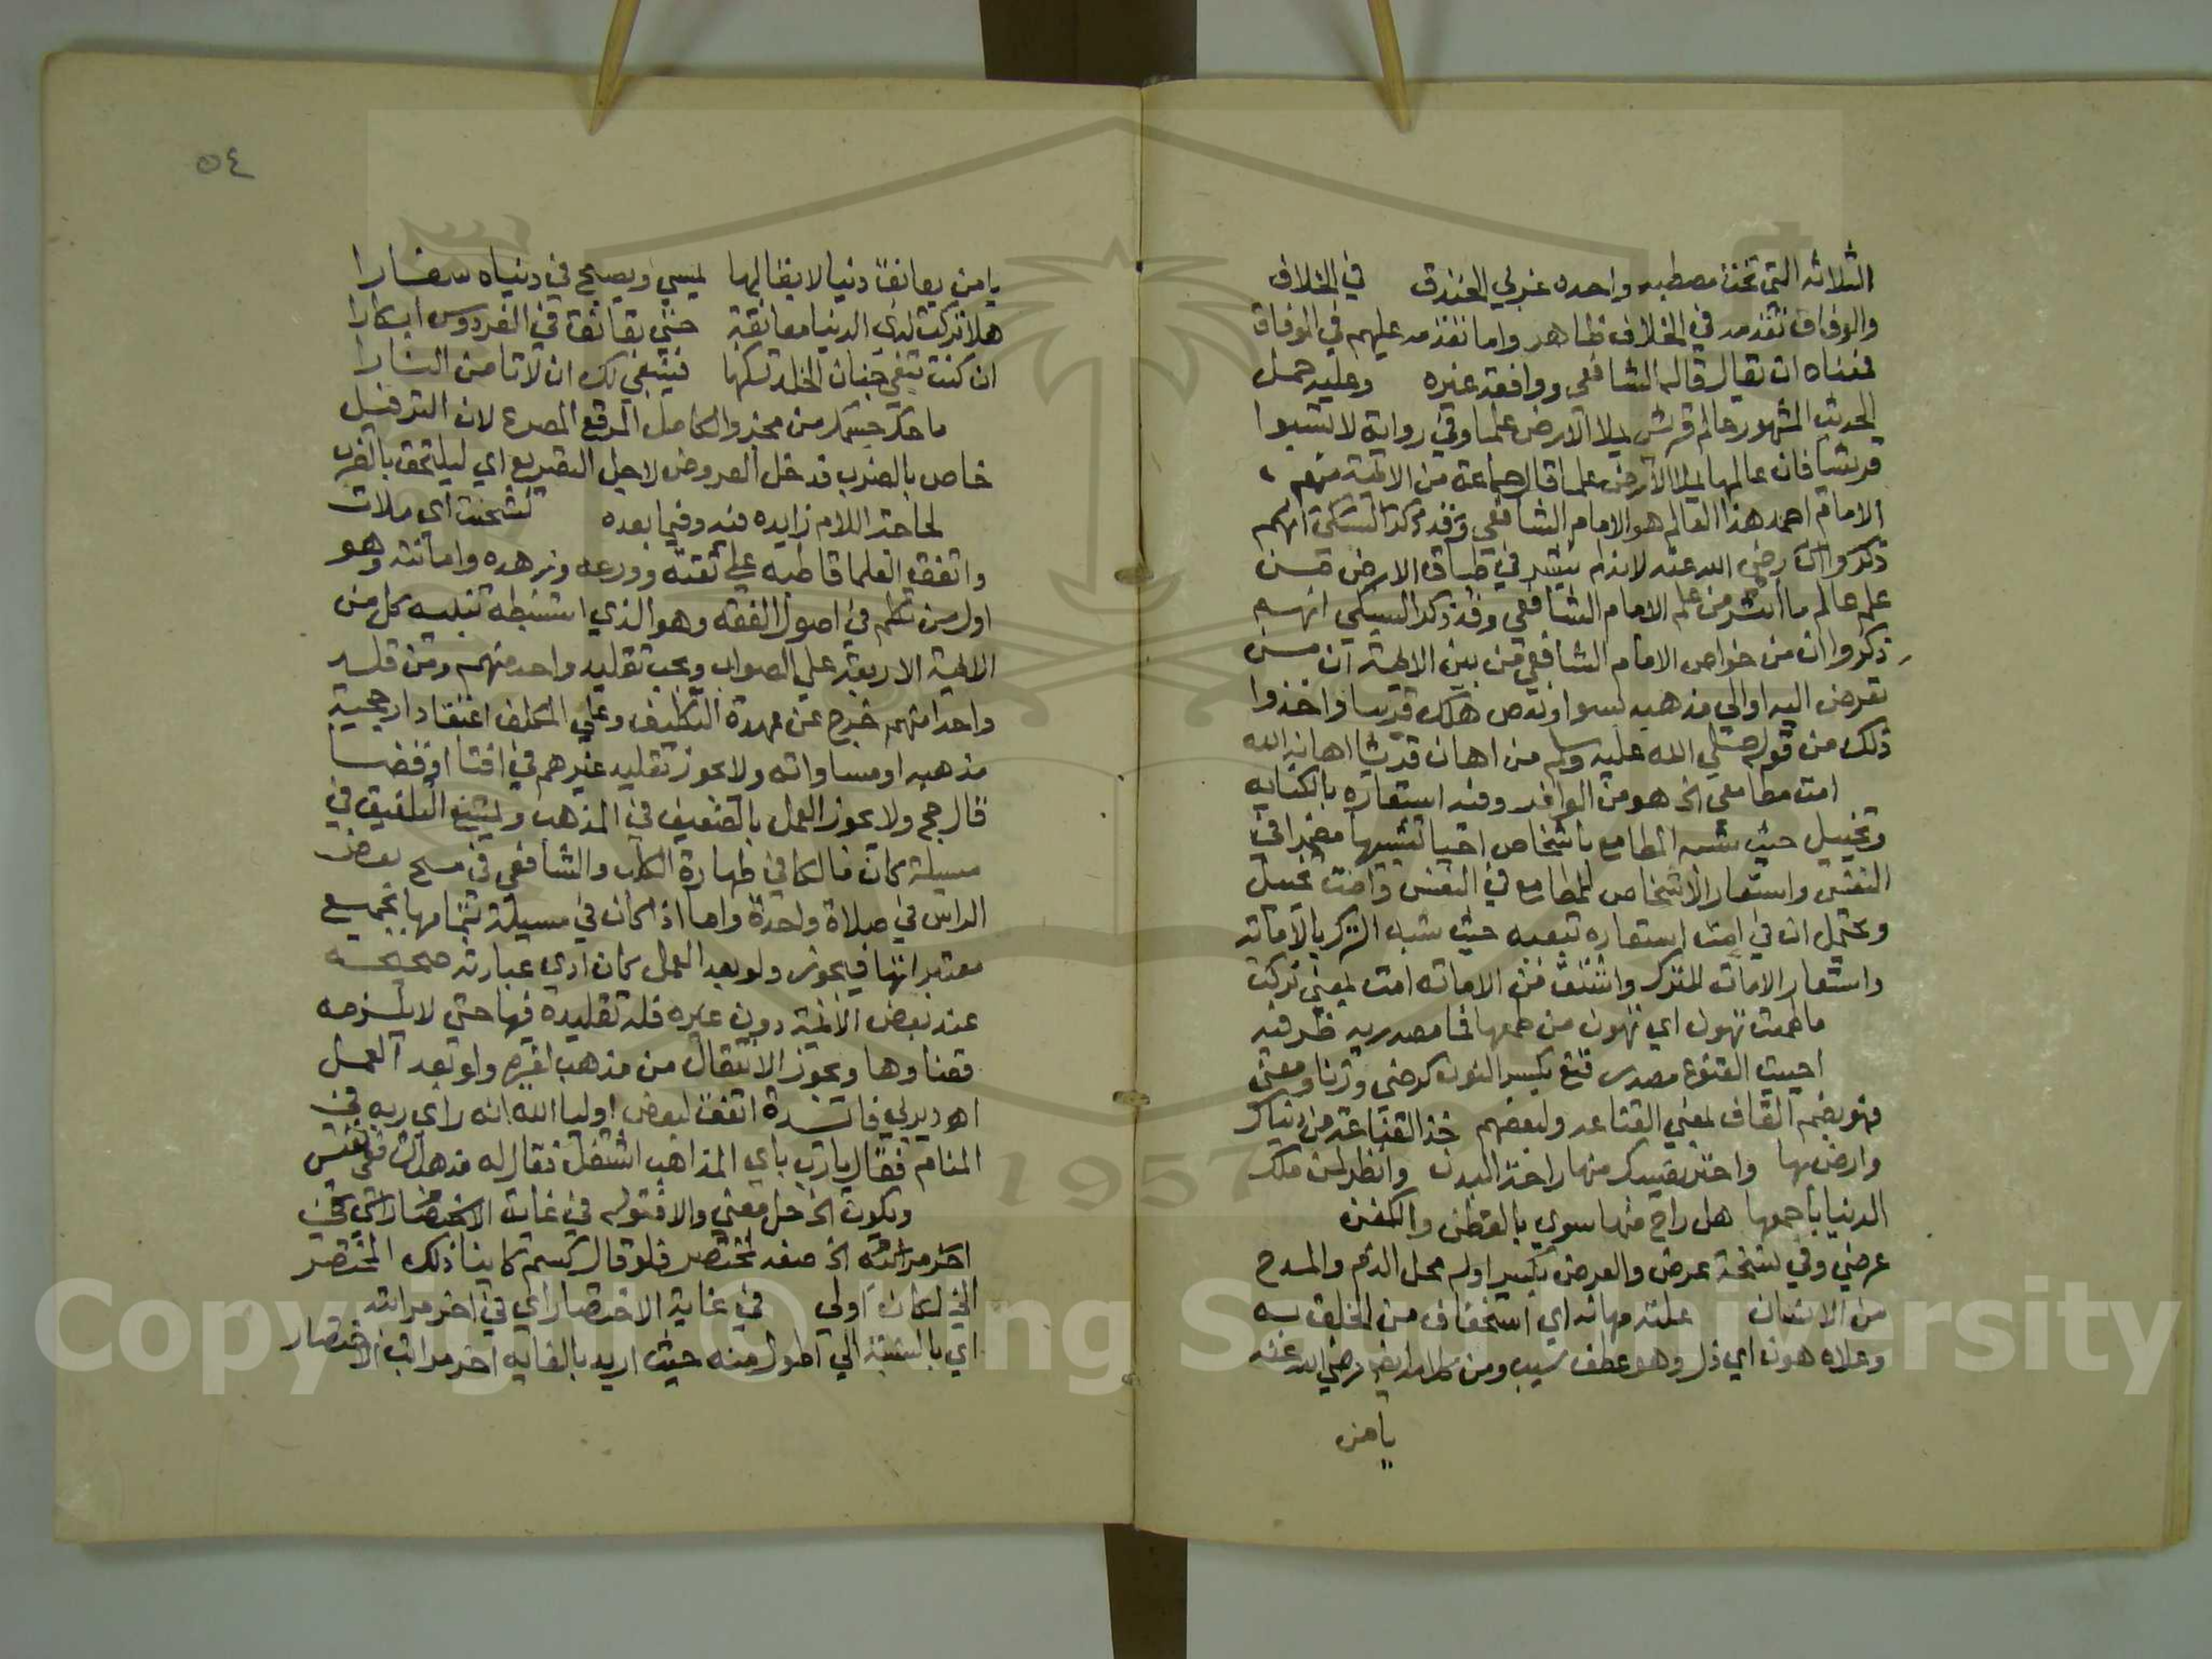 الثلاثه التي تحت مصطبه واحده غربي الخندق في الخلاف
والوفاق تقدمه في الخلاف ظاهر واما تقدمه عليهم في الوفاق
فمعناه ان يقال قاله الشافعي ووافقه غيره وعليه حمل
الحديث المشهور عالم قريش يملا الارض علما وفي رواية لا تسبوا
قريشا فان عالمها يملا الارض علما قال جماعة من الائمة منهم
الامام احمد هذا العالم هو الامام الشافعي وقد ذكر السبكي انهم
ذكروا رضي الله عنه لانه لم ينتشر في طباق الارض من
علم عالم ما انتشر من علم الامام الشافعي وقد ذكر السبكي انهم
ذكروا ان من خواص الامام الشافعي من بين الائمة ان من
تعرض اليه او الي مذهبه بسوا ونقص هلك قريبا واخذوا
ذلك من قوله صلي الله عليه وسلم من اهان قريشا اهانه الله
امت مطامعي الخ هو من الوافر وفيه استعاره بالكنايه
وتخييل حيث شبه المطامع باشخاص احيا تشبيها مضمرا في
النفس واستعار الاشخاص للمطامع في النفس وامت تخييل
ويحتمل ان في امت استعاره تبعيه حيث شبه الترك بالاماته
واستعار الاماته للترك واشتق من الاماته امت بمعني تركت
ما طمعت تهون اي تهون من طمعها فما مصدريه ظرفيه
احييت القنوع مصدر قنع بكسر النون كرضي وزنا ومعني
فهو بضم القاف بمعني القناعه ولبعضهم خذ القناعة من دنياك
وارض بها واختر لنفسك منها راحة البدن وانظر لمن ملك
الدنيا باجمعها هل راح منها سوي بالقطن والكفن
عرضي وفي نسخة عرض والعرض بكسر اوله محل الذم والمدح
من الانسان علته مهانه اي استخفاف من الخلق به
وعلاه هون اي ذل وهو عطف سبب ومن كلامه رضي الله عنه
يا من
٥٤
يا من يعانق دنيا لا بقا لها يمسي ويصبح في دنياه سفارا
هلا تركت لذي الدنيا معانقة حتي تعانق في الفردوس ابكارا
ان كنت تبغي جنان الخلد تسكنها فينبغي لك ان لا تامن النارا
ما حك جسمك من مجزو الكامل المرفع المصرع لان الترفيل
خاص بالضرب فدخل العروض لاجل التصريع اي ليلتحق بالضرب
لحاجة اللام زايده فيه وفيما بعده شحنت اي ملات
واتفق العلما قاطبه علي ثقته وورعه وزهده وامانته وهو
اول من تكلم في اصول الفقه وهو الذي استنبطه تنبيه كل من
الائمة الاربعة علي الصواب ويجب تقليد واحد منهم ومن قلد
واحدا منهم خرج عن عهدة التكليف وعلي المكلف اعتقاد ارجحية
مذهبه او مساواته ولا يجوز تقليد غيرهم في افتا او قضا
قال حج ولا يجوز العمل بالضعيف في المذهب ويمتنع التلفيق في
مسيلة كان قلد مالكا في طهارة الكلب والشافعي في مسح بعض
الراس في صلاة واحدة واما اذا كان في مسيلة بتمامها بجميع
معتبراتها فيجوز ولو بعد العمل كان ادي عبارته صحيحة
عند بعض الائمة دون غيره فله تقليده فيها حتي لا يلزمه
قضاوها ويجوز الانتقال من مذهب لغيره ولو بعد العمل
اهـ ديربي فائدة اتفق لبعض اوليا الله انه راي ربه في
المنام فقال يا رب باي المذاهب اشتغل فقال له مذهب الشافعي نفيس
ويكون الخ حل معني والا فقوله في غاية الاختصار اي في
اخر مراتبه الخ صفه لمختصر فلو قال كبسم كاينا ذلك المختصر
الخ لكان اولي في غاية الاختصار اي في اخر مراتبه
اي بالنسبة الي اطول منه حيث اريد بالغايه اخر مراتب الاختصار
Copyright © King Saud University
1957